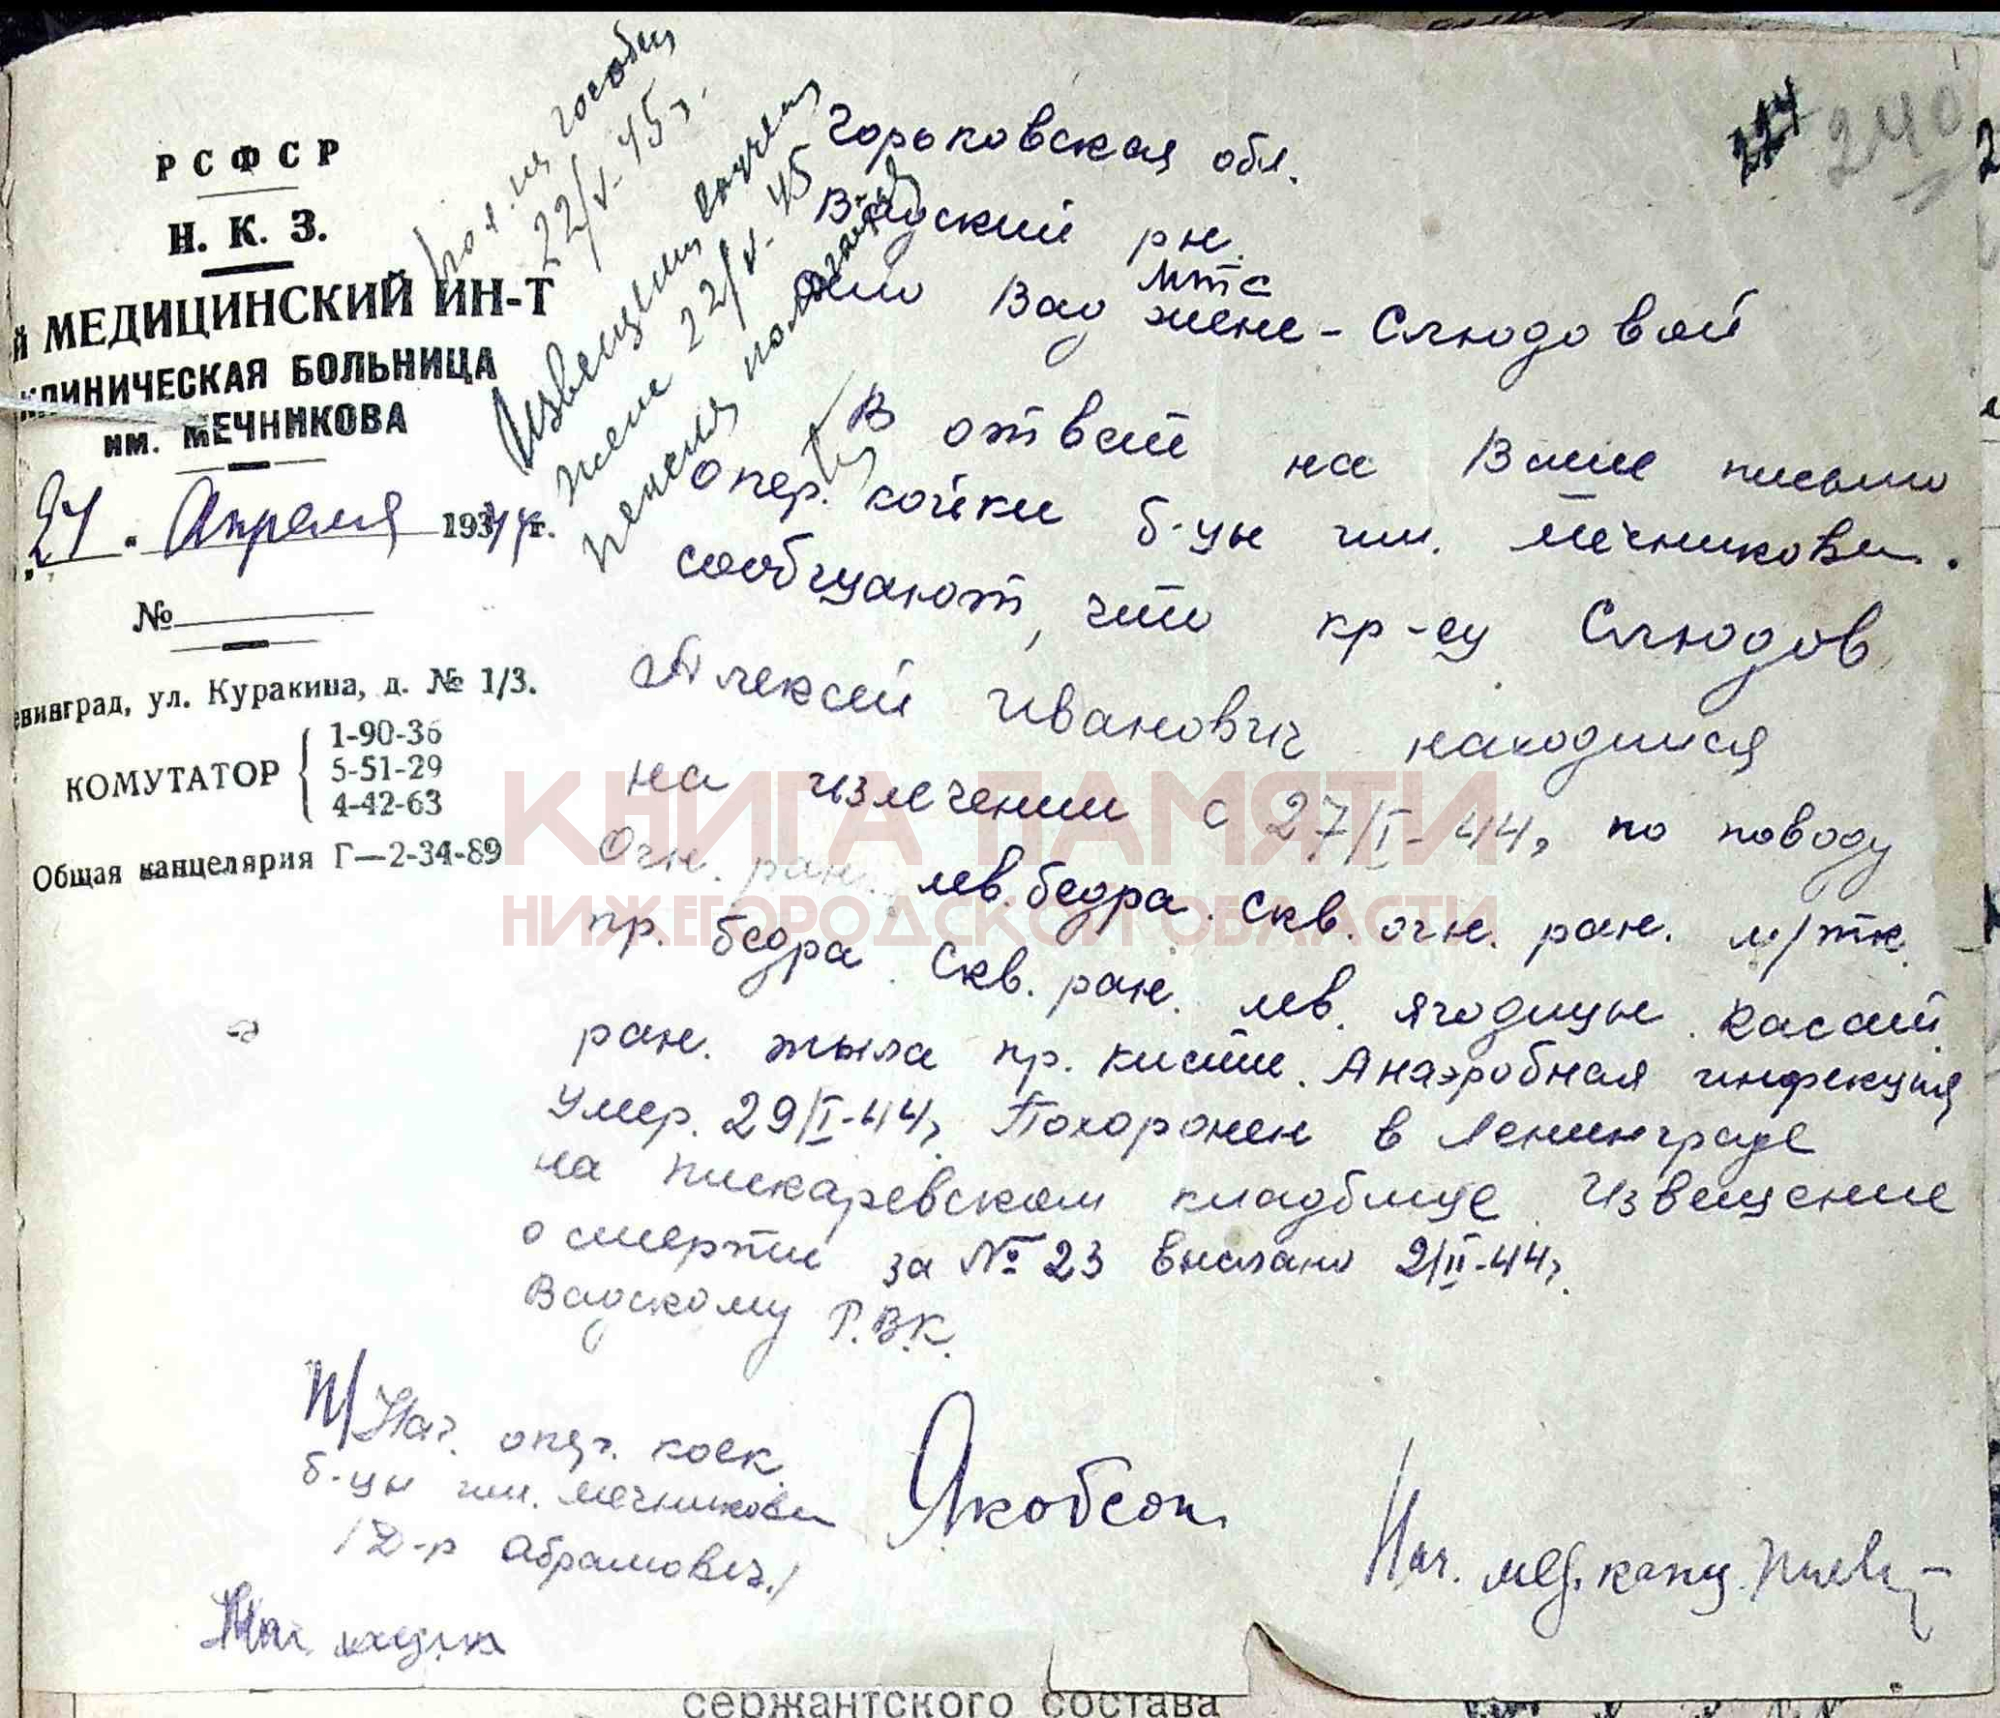 РСФСР
Н. К. З.
Й МЕДИЦИНСКИЙ ИН-Т
КЛИНИЧЕСКАЯ БОЛЬНИЦА
им. МЕЧНИКОВА
"21" Апреля 1944 г.
№
енинград, ул. Куракина, д. № 1/3.
КОМУТАТОР
1-90-36
5-51-29
4-42-63
Общая канцелярия Г—2-34-89
22/V-45г.
Извещение
жене 22/V-45
пенсия
224
240
Горьковская обл.
Вадский рн.
МТС
Вад жене - Слюдовой
В ответ на Ваше письмо
опер. койки б-цы им. Мечникова.
сообщают, что кр-ец Слюдов
Алексей Иванович находился
на излечении с 27/I-44г по поводу
Огн. ран. лев. бедра. Скв. огн. ран. м/тк.
пр. бедра. Скв. ран. лев. ягодицы. Касат.
ран. тыла пр. кисти. Анаэробная инфекция
Умер. 29/I-44г. Похоронен в Ленинграде
на пискаревском кладбище. Извещение
о смерти за № 23 выслано 2/II-44г.
Вадскому Р.В.К.
П/Нач. опер. коек
б-цы им. Мечникова
/Д-р Абрамович./
Якобсон
Нач. мед. канц.
КНИГА ПАМЯТИ
НИЖЕГОРОДСКОЙ ОБЛАСТИ
сержантского состава